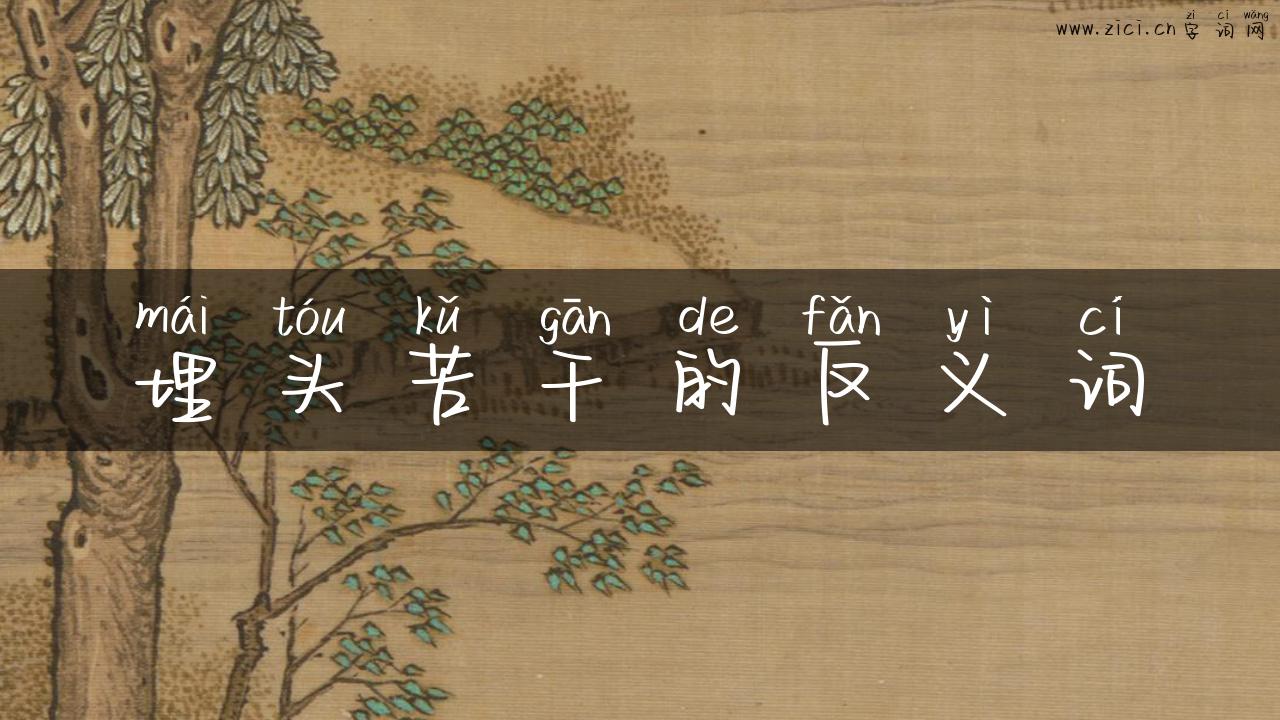 zì cí wǎng
www.zici.cn 字词网
mái tóu kǔ gān de fǎn yì cí
埋头苦干的反义词